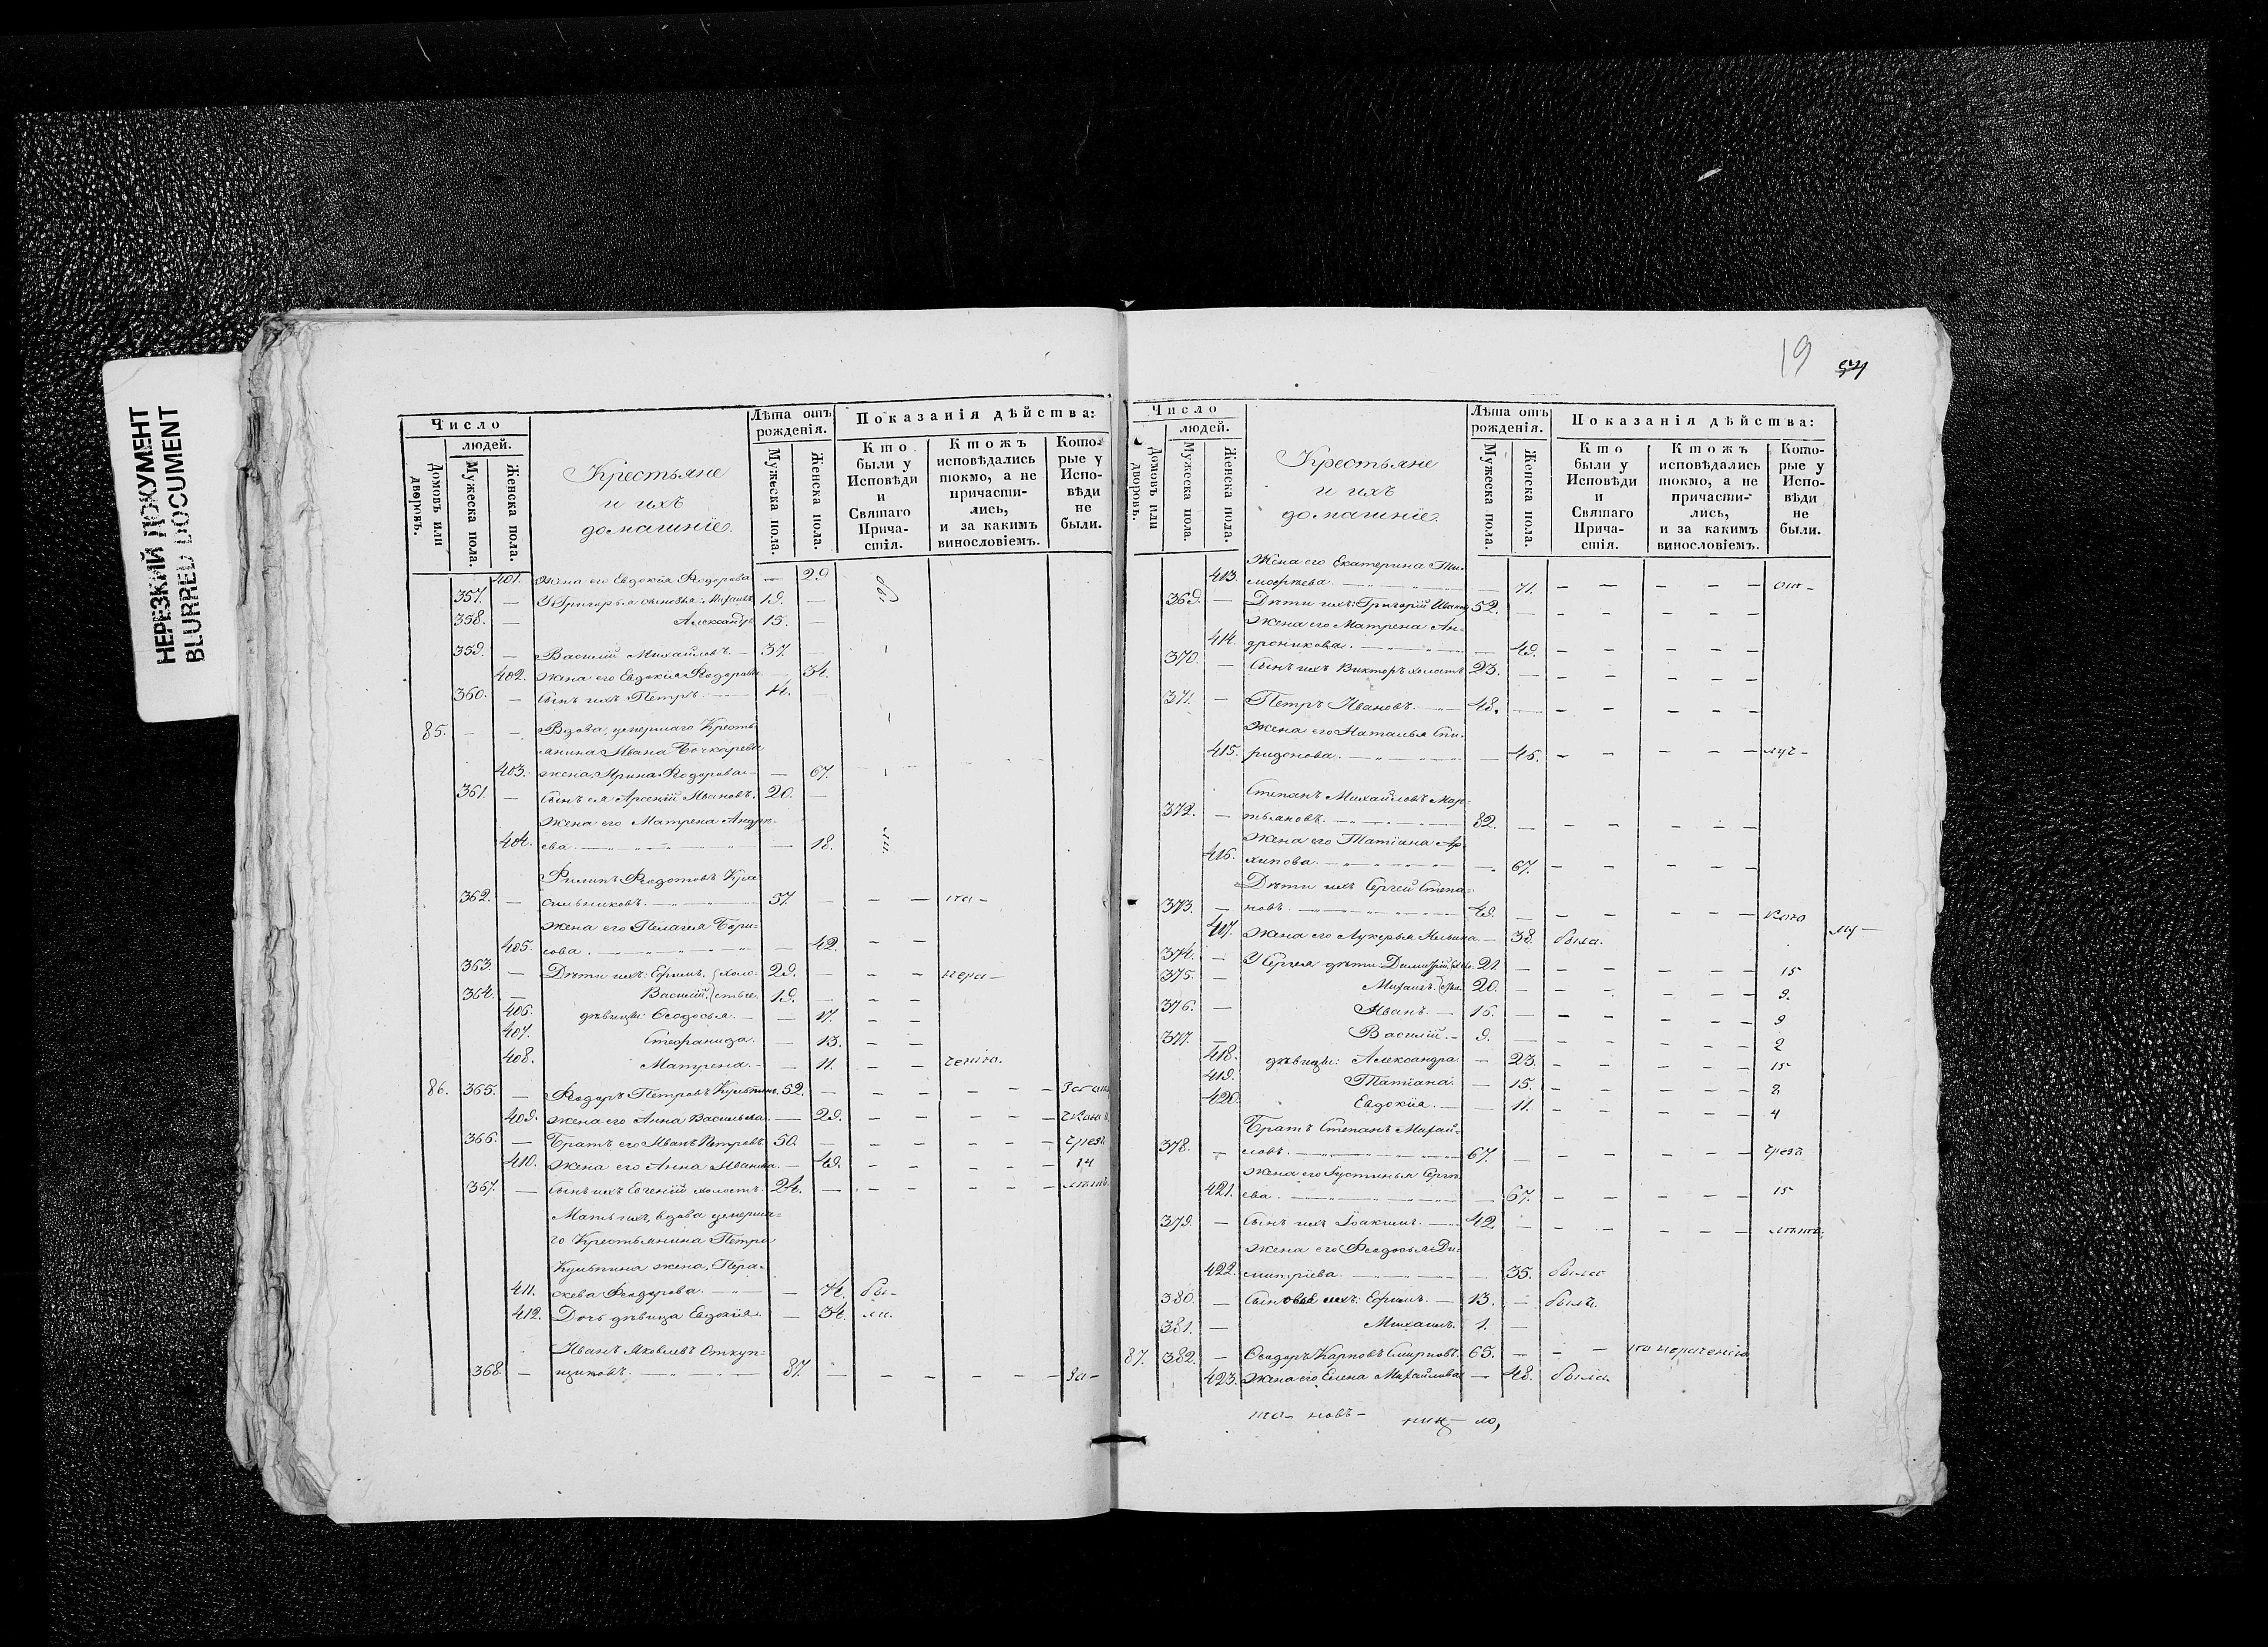 НЕРЕЗКИЙ ДОКУМЕНТ
BLURRED DOCUMENT
Число
людей.
Домовъ или дворовъ.
Мужеска пола.
Женска пола.
Крестьяне
и ихъ
домашніе.
Лѣта отъ рожденія.
Мужеска пола.
Женска пола.
Показанія дѣйства:
Кто были у Исповѣди и Святаго Прича-стія.
Ктожъ исповѣдались токмо, а не причасти-лись, и за какимъ винословіемъ.
Кото-рые у Испо-вѣди не были.
401. Жена его Евдокія Ѳеодорова — 29
357. — У Григорья сыновья: Михаилъ 19. —
358. — Александръ 15. —
359. — Василій Михайловъ. — 37. —
402. Жена его Евдокія Ѳеодорова — 34.
360. — Сынъ ихъ Петръ. — 14. —
85. — — Вдова, умершаго Кресть-
янина Ивана Бочкарева
403. жена, Ирина Ѳеодорова — — 67.
361. — Сынъ ея Арсеній Ивановъ. 20. —
Жена его Матрена Андре-
404. ева. — — 18. ли.
Филипъ Ѳедотовъ Кра-
362. — сильниковъ. — 57. — — — за —
Жена его Пелагея Бори-
405. сова. — — 42. — —
363. — Дѣти ихъ: Ефимъ. } холо- 29. — — — нера —
364. — Василій. } стые. 19. — — —
406. дѣвицы: Ѳеодосья. — — 17. — —
407. Стефанида. — 13. — —
408. Матрена. — — 11. — — ченію.
86. 365. — Ѳеодоръ Петровъ Кульпинъ. 52. — — — — — —
409. Жена его Анна Васильева. — 29. — — — — —
366. — Братъ его Иванъ Петровъ. 50. — — — — — — чрезъ
410. Жена его Анна Иванова. — 49. — — — — — 14
367. — Сынъ ихъ Евгеній холостъ. 24. — — — — — — лѣтъ.
Мать ихъ, вдова умерша-
го Крестьянина Петра
Кульпина жена, Пера-
411. скева Ѳеодорова. — — 74. бы-
412. Дочь дѣвица Евдокія. — 34. ли.
Иванъ Яковлевъ Откуп-
368. — щиковъ. — 87. — — — — — — За —
19
Число
людей.
Домовъ или дворовъ.
Мужеска пола.
Женска пола.
Крестьяне
и ихъ
домашніе.
Лѣта отъ рожденія.
Мужеска пола.
Женска пола.
Показанія дѣйства:
Кто были у Исповѣди и Святаго Прича-стія.
Ктожъ исповѣдались токмо, а не причасти-лись, и за какимъ винословіемъ.
Кото-рые у Испо-вѣди не были.
Жена его Екатерина Ти-
413. моѳеева. — — 71. — — — — —
369. — Дѣти ихъ: Григорій Ивановъ 52. — — — — — —
Жена его Матрена Ан-
414. дроникова. — — 49. — — — — —
370. — Сынъ ихъ Викторъ холостъ 23. — — — — — —
371. — Петръ Ивановъ. — 48. — — — — — —
Жена его Наталья Спи-
415. ридонова. — — 46. — — — — —
Степанъ Михайловъ Мар-
372. — тьяновъ. — 82. — — — — — —
Жена его Татіана Ар-
416. хипова. — — 67. — — — — —
Дѣти ихъ Сергей Степа-
373. — новъ. — 49. — — — — — —
417. Жена его Лукерья Ильина. — 38. была.
374. — У Сергея дѣти: Димитрій. 21. — — — — — — 15
375. — Михаилъ. 20. — — — — — — 9.
376. — Иванъ. — 16. — — — — — — 9
377. — Василій. — 9. — — — — — — 2
418. дѣвицы: Александра. — 23. — — — — — 15
419. Татіана. — 15. — — — — — 8
420. Евдокія. — — 11. — — — — — 4
Братъ Степанъ Михай-
378. — ловъ. — 67. — — — — — — чрезъ
Жена его Устинья Серге-
421. ева. — — 67. — — — — — 15
379. — Сынъ ихъ Іоакимъ. — 42. — — — — — — лѣтъ.
Жена его Ѳеодосья Ди-
422. митріева. — — 35. была
380. — Сыновья ихъ: Ефимъ. — 13. — былъ.
381. — Михаилъ. 1. —
87. 382. — Ѳеодоръ Карповъ Смирновъ. 65. — — — за нераченіемъ
423. Жена его Елена Михайлова — 48. была.